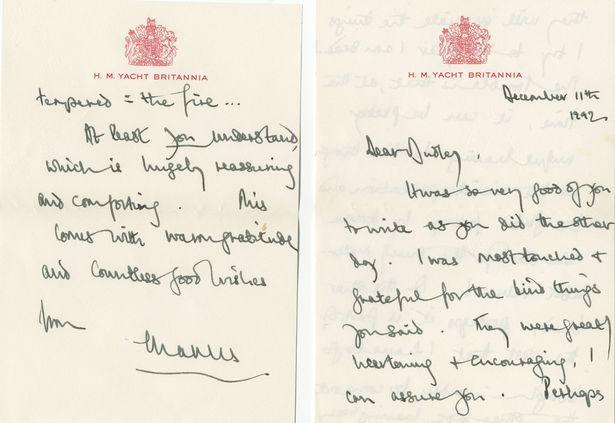 H. M. YACHT BRITANNIA
December 11th
1992
Dear Dudley.
It was so very good of you
to write as you did the other
day. I was most touched +
grateful for the kind things
you said. They were greatly
heartening + encouraging, I
can assure you. Perhaps
H. M. YACHT BRITANNIA
tempered = the fire ...
At least you understand,
which is hugely reassuring
and comforting. This
comes with warm gratitude
and countless good wishes
from
Charles